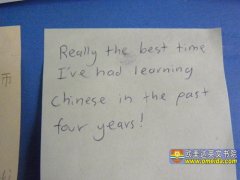 Really the best time
I've had learning
Chinese in the past
four years!
币
欧美达英文书院
www.omeida.cn